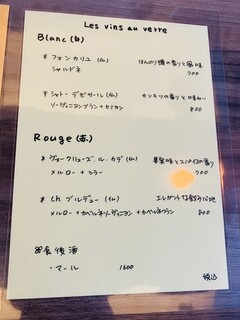 Les vins au verre
Blanc (白)
* フォンカリユ (仏) ほんのり樽の香りと風味
シャルドネ 700
* シャトー・デゼサール (仏) カンキツの香りと味わい
ソーヴィニヨンブラン+セミヨン 800
Rouge (赤)
* ヴュークリューズ・ル・カデ (仏) 果実味とスパイスの香り
メルロー + シラー 700
* Ch ブルデュー (仏) エレガントな飲み心地
メルロー + カベルネソーヴィニヨン + カベルネフラン 800
食後酒
・マール 1600
税込